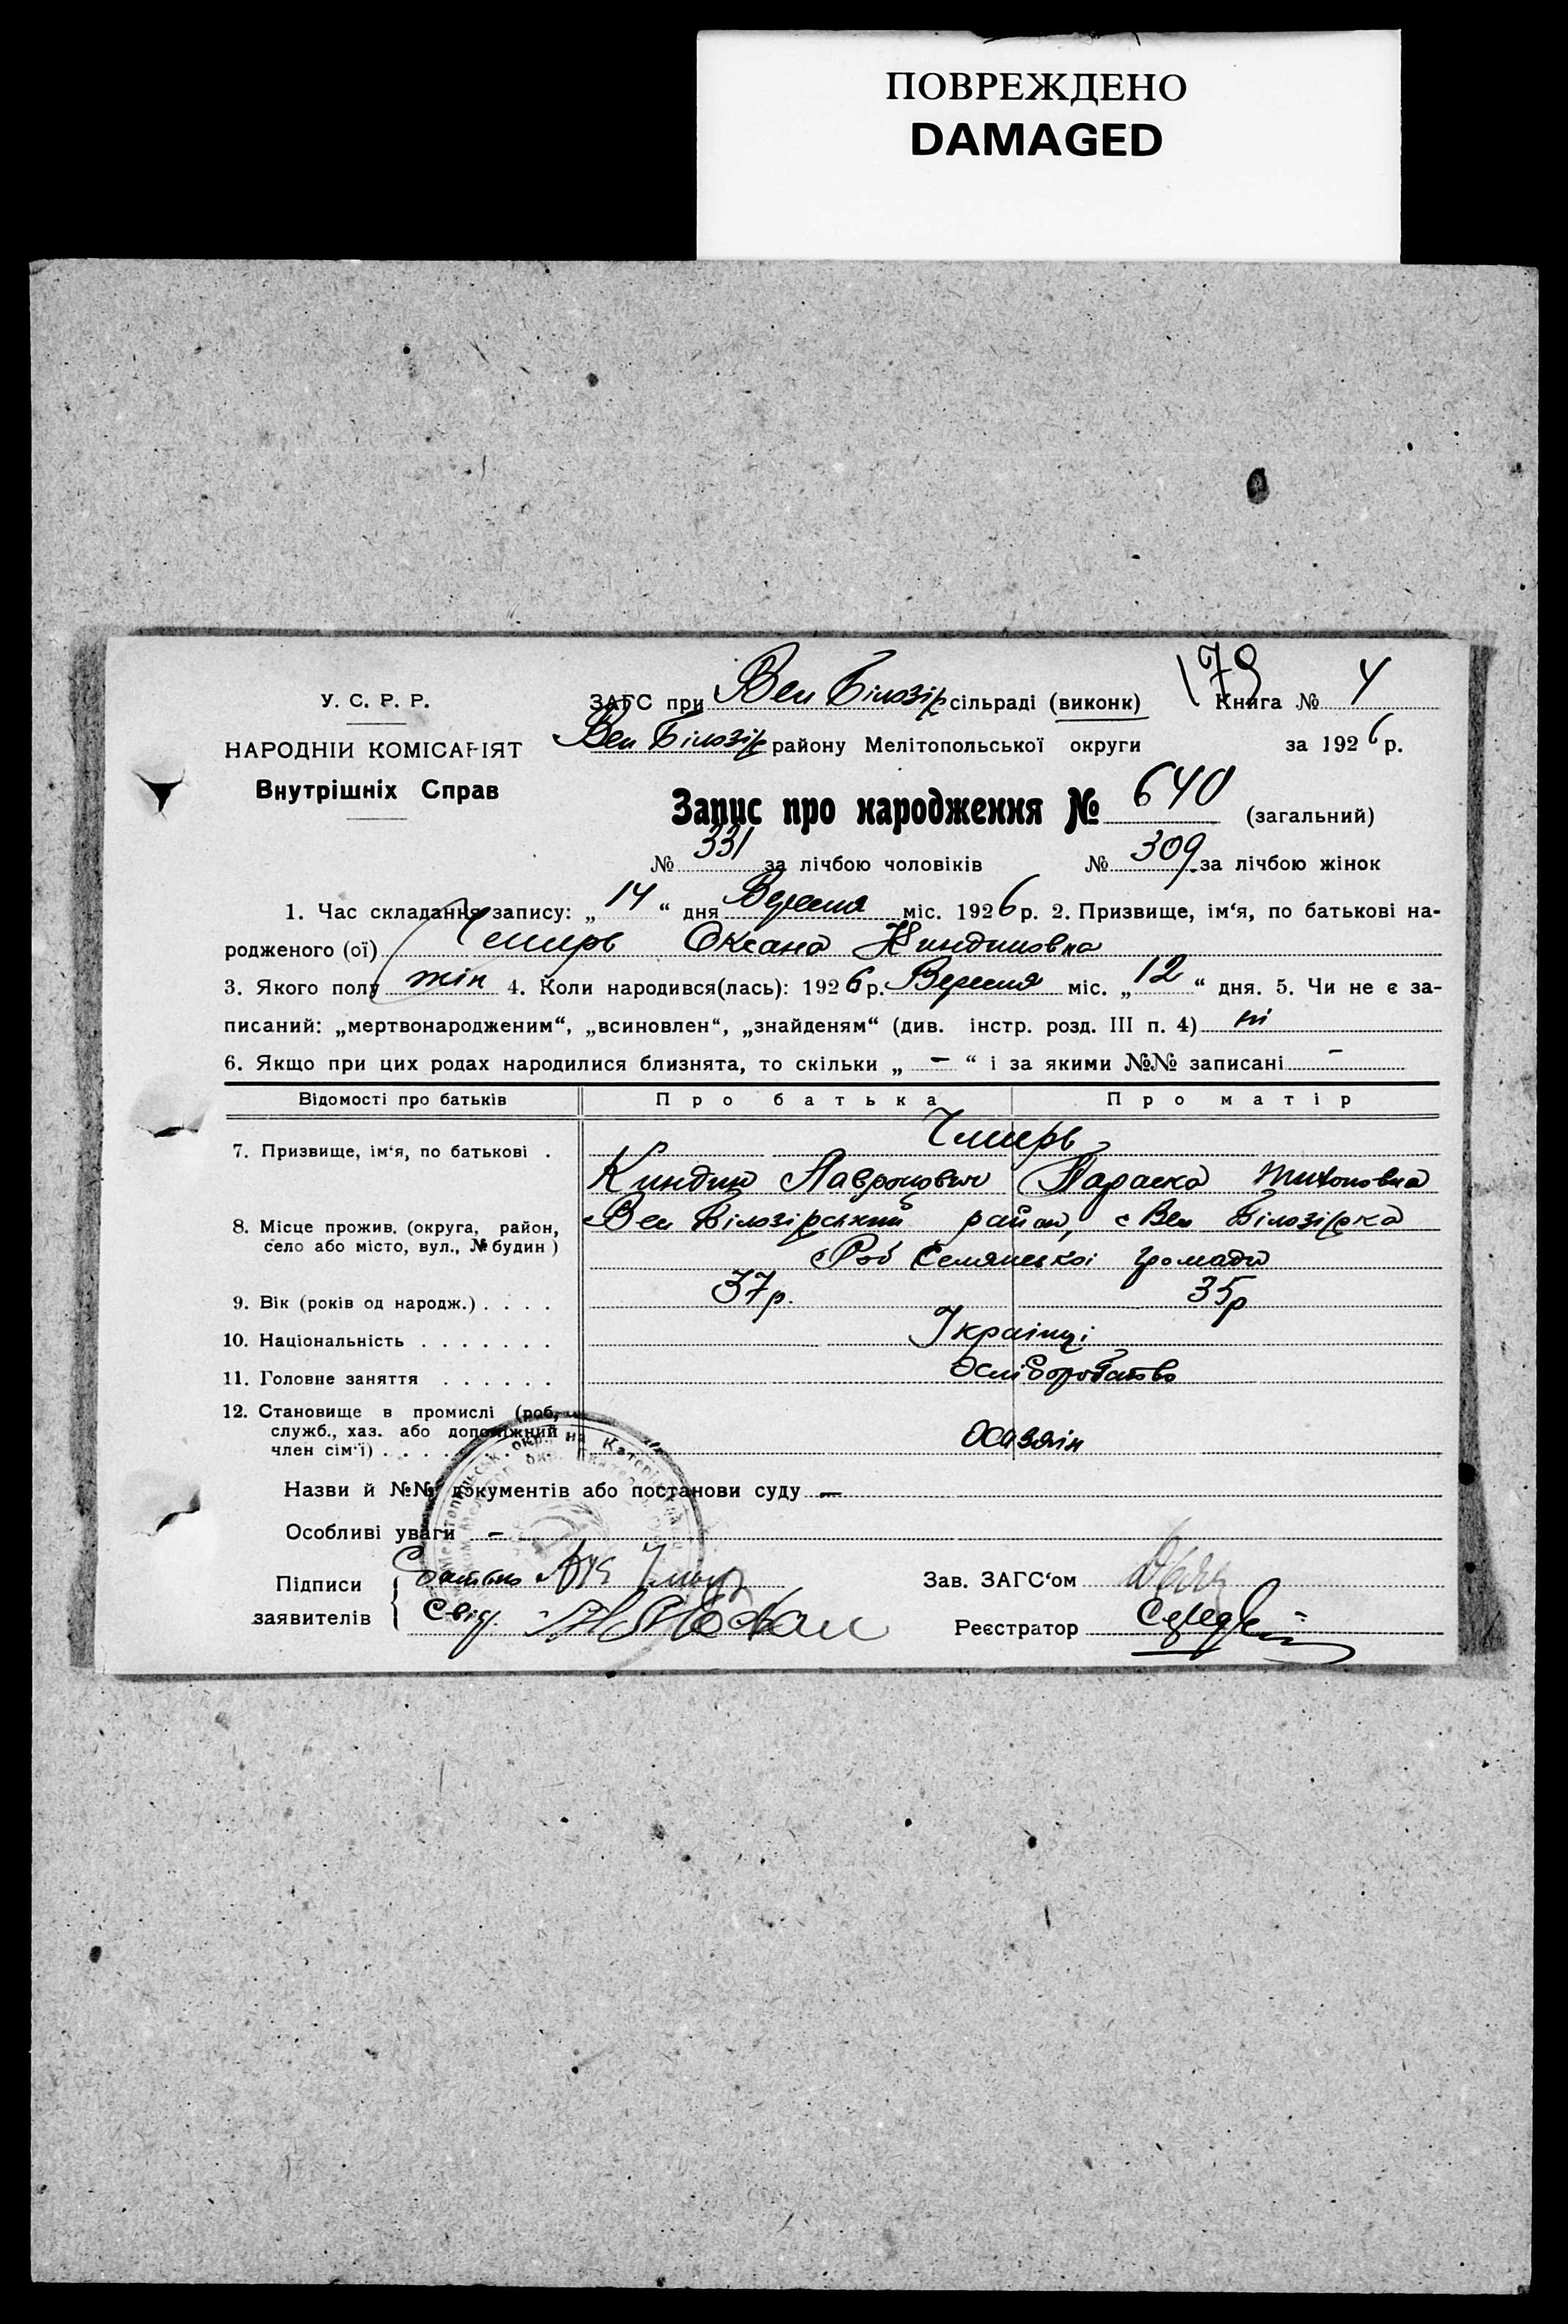 ПОВРЕЖДЕНО
DAMAGED
179
У. С. Р. Р.
НАРОДНІЙ КОМІСАРІЯТ
Внутрішніх Справ
ЗАГС при Вел Білозір сільраді (виконк) Книга № 4
Вел Білозір району Мелітопольської округи за 1926 р.
Запис про народження № 640 (загальний)
№ 331 за лічбою чоловіків № 309 за лічбою жінок
1. Час складання запису: „ 14 “ дня Вересня міс. 1926 р. 2. Призвище, ім‘я, по батькові на-
родженого (ої) Чмирь Оксана Киндиновна
3. Якого полу жін 4. Коли народився(лась): 1926 р. Вересня міс. „ 12 “ дня. 5. Чи не є за-
писаний: „мертвонародженим“, „всиновлен“, „знайденям“ (див. інстр. розд. III п. 4) ні
6. Якщо при цих родах народилися близнята, то скільки „ — “ і за якими №№ записані —
Відомості про батьків Про батька Про матір
7. Призвище, ім‘я, по батькові . Чмирь
Киндин Лавронович Параска Тихоновна
8. Місце прожив. (округа, район, село або місто, вул., № будин) Вел Білозірський район, с Вел Білозірка
громади
9. Вік (років од народж.) . . . . 37 р. 35 р
10. Національність . . . . . . . Українці
11. Головне заняття . . . . . . Хліборобство
12. Становище в промислі (роб, служб., хаз. або допоміжний член сім‘ї) . . . Хазяїн
Назви й №№ документів або постанови суду —
Особливі уваги —
Підписи заявителів { Батько Чмирь
Свід.
Зав. ЗАГС‘ом
Реєстратор